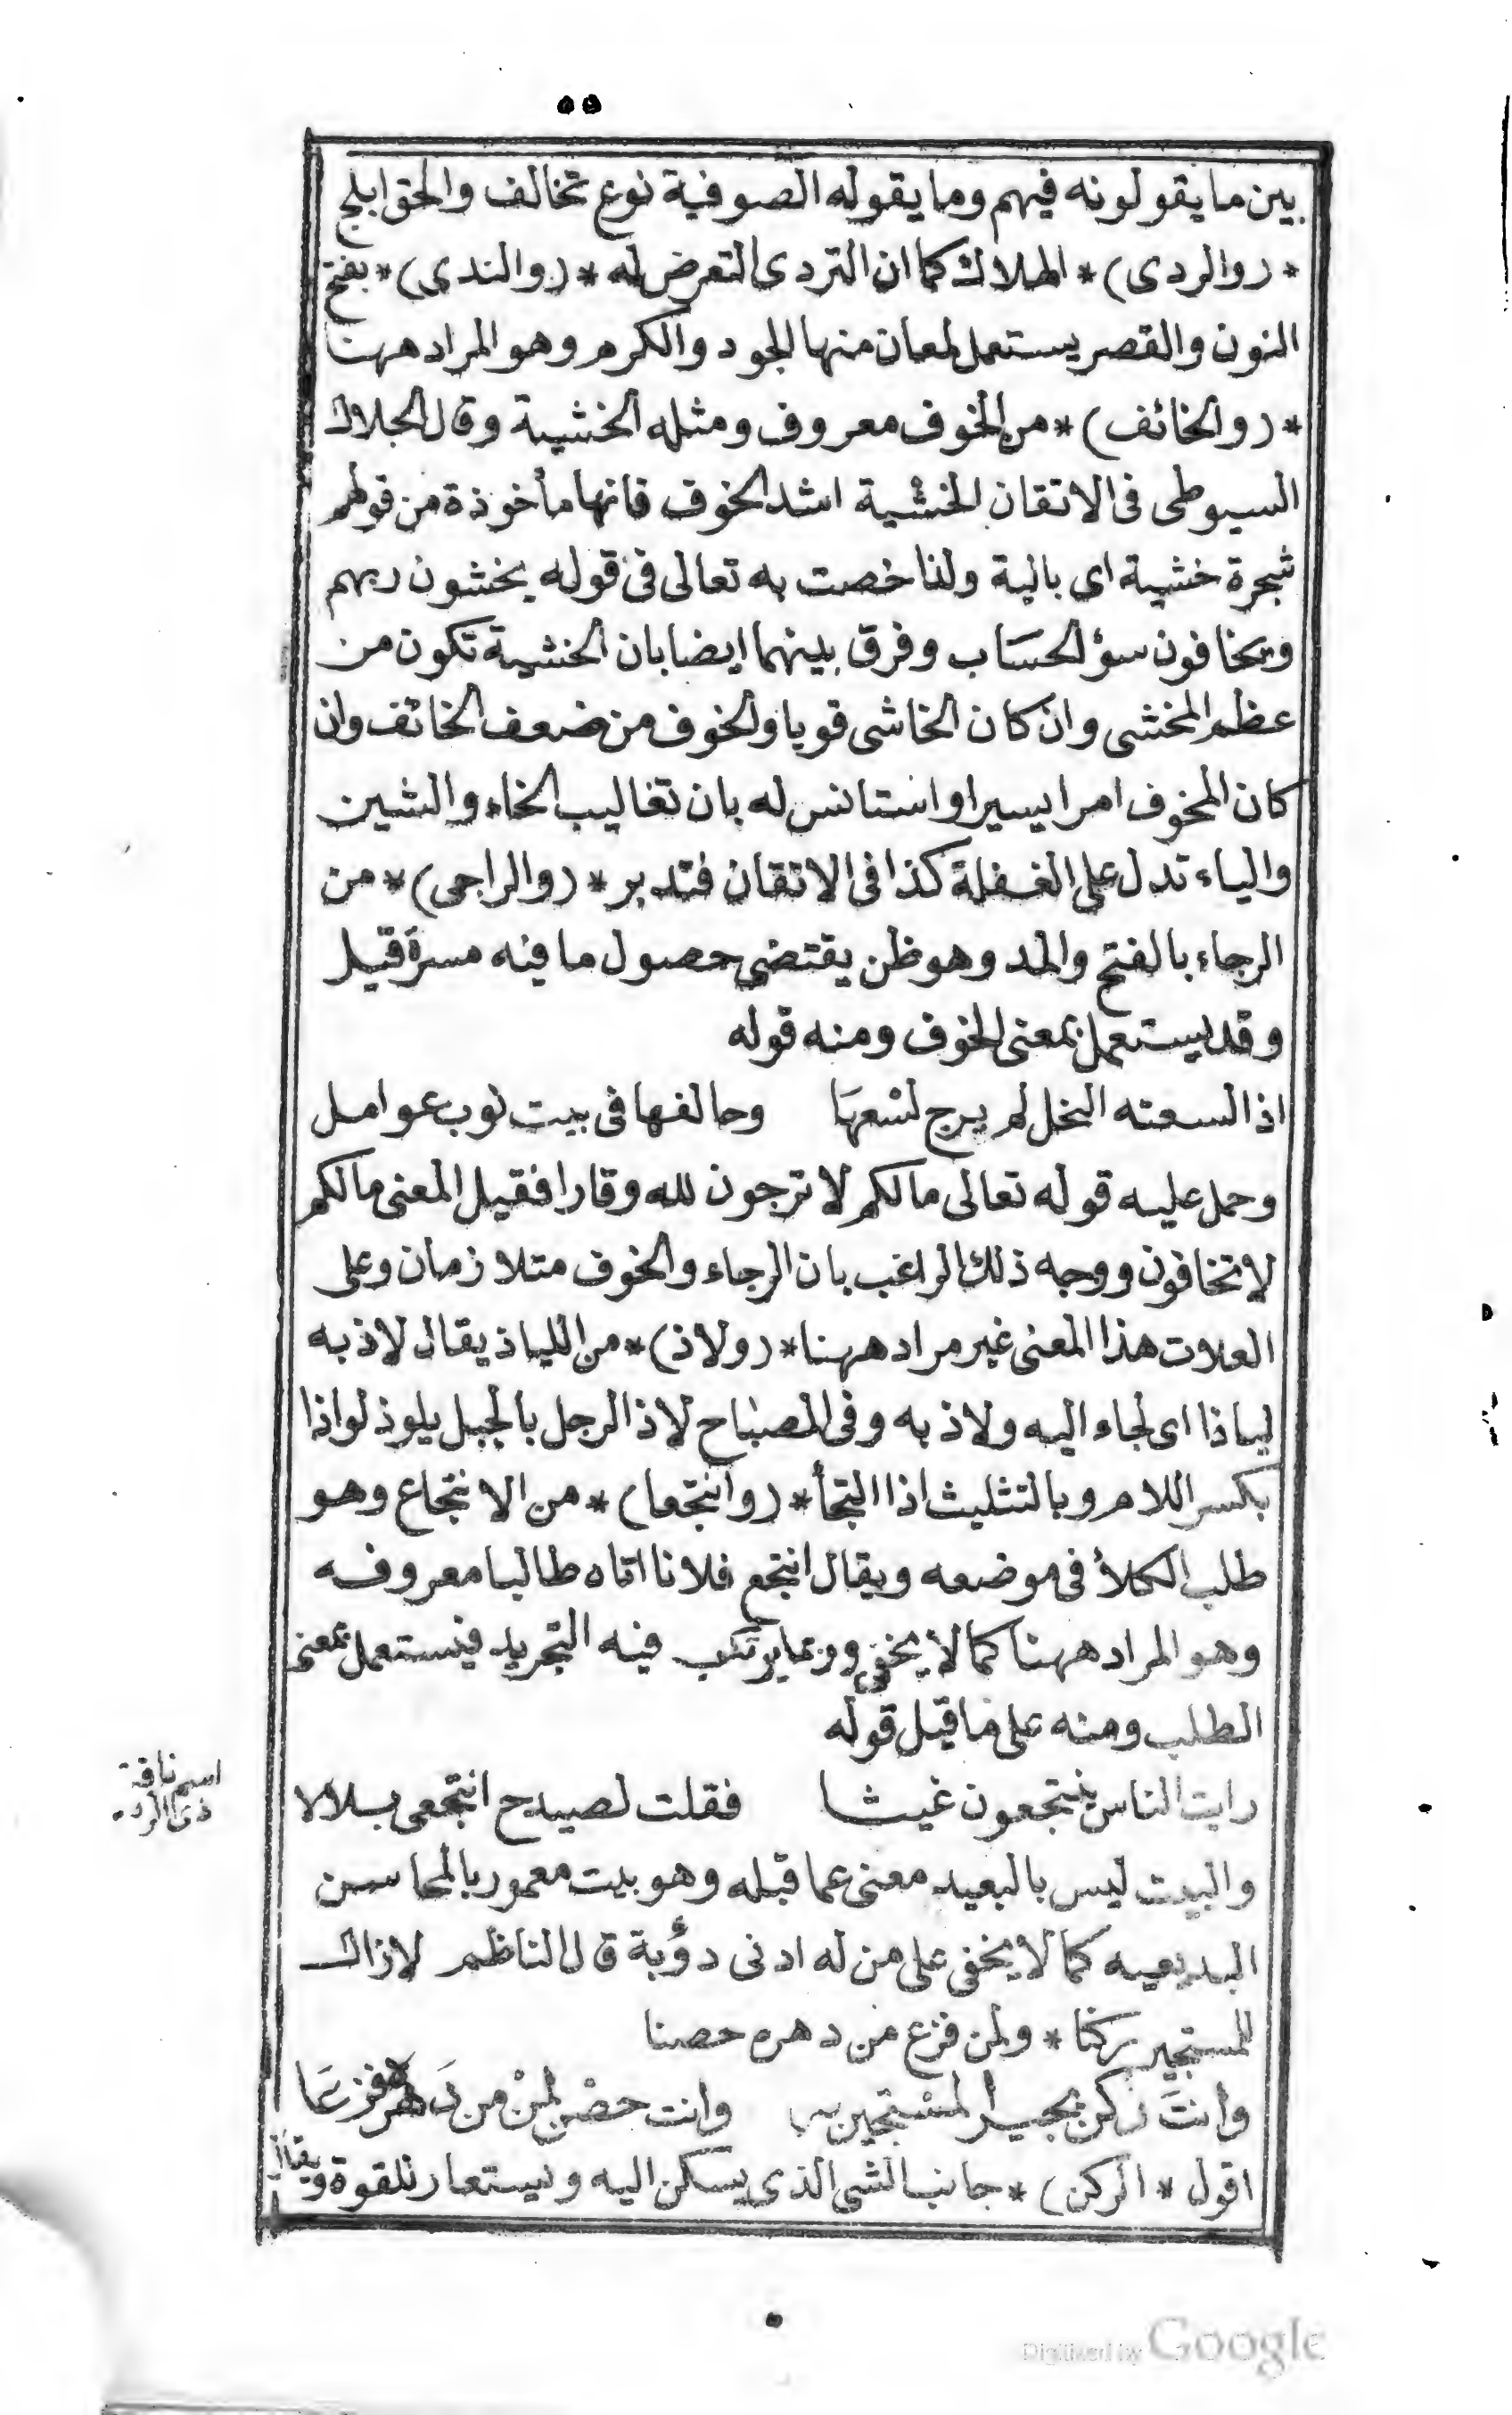 ٥٥
بين ما يقولونه فيهم وما يقوله الصوفية نوع تخالف والحق ابلج
* (والردى) * الهلاك كما ان التردى التعرض له * (والندى) * بفتح
النون والقصر يستعمل لمعان منها الجود والكرم وهو المراد ههنا
* (والخائف) * من الخوف معروف ومثله الخشية وقال الجلال
السيوطى فى الاتقان الخشية اشد الخوف فانها مأخوذة من قولهم
شجرة خشية اى بالية ولذا خصت به تعالى فى قوله يخشون ربهم
ويخافون سؤ الحسَاب وفرق بينهما ايضا بان الخشية تكون من
عظم المخشى وان كان الخاشى قويا والخوف من ضعف الخائف وان
كان المخوف امرا يسيرا واستانس له بان تغاليب الخاء والشين
والياء تدل على الغفلة كذا فى الاتقان فتدبر * (والراجى) * من
الرجاء بالفتح والمد وهو ظن يقتضى حصول ما فيه مسرة قيل
وقد يستعمل بمعنى الخوف ومنه قوله
اذا لسعته النحل لم يرج لسْعهَا وحالفها فى بيت نوب عوامل
وحمل عليه قوله تعالى مالكم لا ترجون لله وقارا فقيل المعنى مالكم
لا تخافون ووجه ذلك الراغب بان الرجاء والخوف متلازمان وعلى
العلات هذا المعنى غير مراد ههنا * (ولاذ) * من اللياذ يقال لاذ به
لياذا اى لجاء اليه ولاذ به وفى المصباح لاذ الرجل بالجبل يلوذ لواذا
بكسر اللام وبالتثليث اذا التجأ * (وانتجعا) * من الانتجاع وهو
طلب الكلأ فى موضعه ويقال انتجع فلانا اتاه طالبا معروفه
وهو المراد ههنا كما لا يخفى وربما يرتكب فيه التجريد فيستعمل بمعنى
الطلب ومنه على ما قيل قوله
رايت الناس ينتجعون غيثا فقلت لصيدح انتجعى بلالا
اسم ناقة
ذى الرمة
والبيت ليس بالبعيد معنى عما قبله وهو بيت معمور بالمحاسن
البديعيه كما لا يخفى على من له ادنى دؤبة قال الناظم لازال
للمستجير ركنا * ولمن فزع من دهره حصنا
وانتَ ركن مجير المسْتجير به وانت حصْن لمنْ من دَهره فزعَا
اقول * الركن) * جانب الشى الذى يسكن اليه ويستعار للقوة ويقال
Digitized by Google